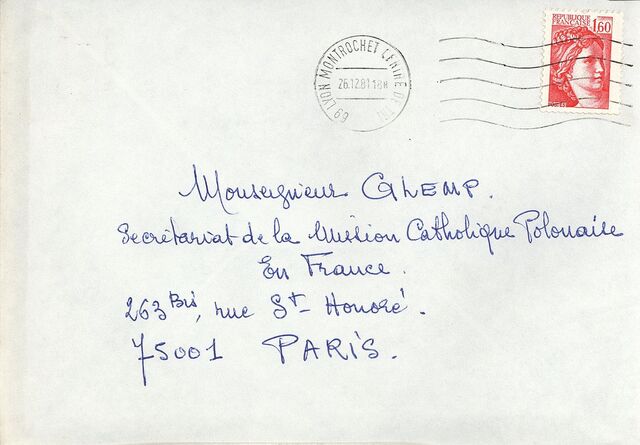 RÉPUBLIQUE
FRANÇAISE 1,60
69 LYON MONTROCHET CENTRE DE TRI
26.12.81 18H
Monseigneur GLEMP.
Secrétariat de la Mission Catholique Polonaise
En France.
263 Bis, rue St-Honoré.
75001 PARIS.